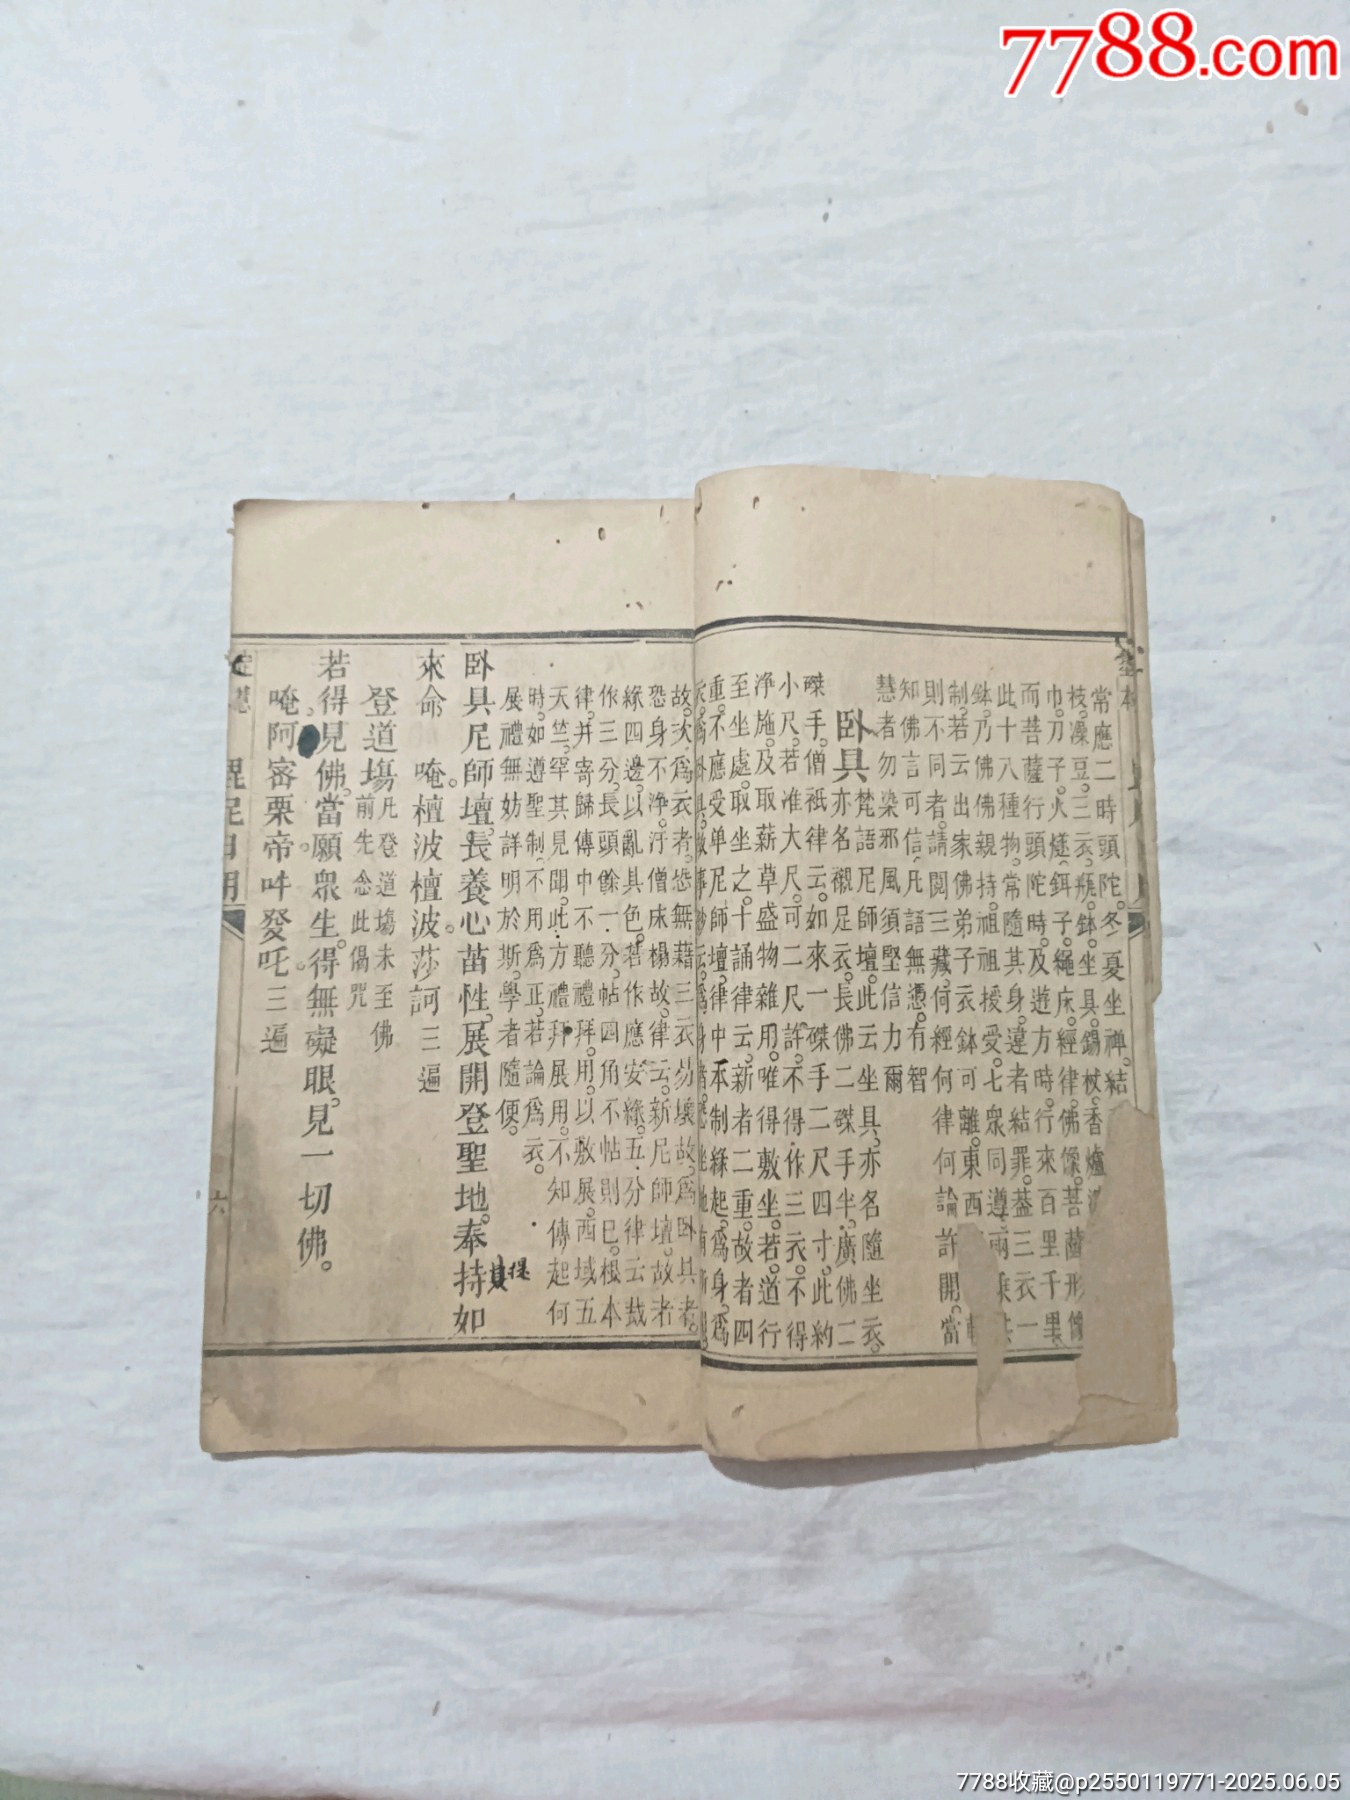 7788.com
常應二時頭陀。冬夏坐禪。結
枝。澡豆。三衣。瓶。鉢。坐具。錫杖。香爐
巾。刀子。火燧。鑷子。繩床。經律。佛像。菩薩形像
而菩薩行頭陀時。及遊方時。行來百里千里
此十八種物。常隨其身。違者結罪。葢三衣一
鉢。乃佛佛親持。祖祖授受。七衆同遵。兩乘共
制。若云出家佛弟子。衣鉢可離。東西
則不同者。請閱三藏。何經何律何論許開。當
知佛言可信。凡語無憑。有智
慧者。勿染邪風。須堅信力爾
卧具 梵語尼師壇。此云坐具。亦名隨坐衣。
亦名襯足衣。長佛二磔手半。廣佛二
磔手。僧祇律云。如來一磔手二尺四寸。此約
小尺。若准大尺。可二尺許。不得作三衣。不得
淨施。及取薪草盛物雜用。唯得敷坐。若道行
至坐處。取坐之。十誦律云。新者二重。故者四
重。不應受单尼師壇。律中本制。緣起爲身。爲
故。次爲衣者。恐無藉三衣易壞故。爲卧具者。
恐身不淨。汙僧床榻故。律云。新尼師壇。故者
緣四邊。以亂其色。若作應安緣。五分律云。裁
作三分。長頭餘一分。帖四角。不帖則已。根本
律。并寄歸傳中。不聽禮拜。用以敷展。西域五
天竺。罕其見聞。此方禮拜展用。不知傳起何
時。如遵聖制。不用爲正。若論爲衣。
展禮無妨。詳明於斯。學者隨便。
卧具尼師壇。長養心苗性。展開登聖地。奉持如
其提
來命 唵。檀波檀波。莎訶 三遍
登道塲 凡登道塲。未至佛
前。先念此偈咒
若得見佛。當願衆生。得無礙眼。見一切佛。
唵阿密栗帝吽發吒 三遍
毘尼日用
六
7788收藏@p2550119771-2025.06.05